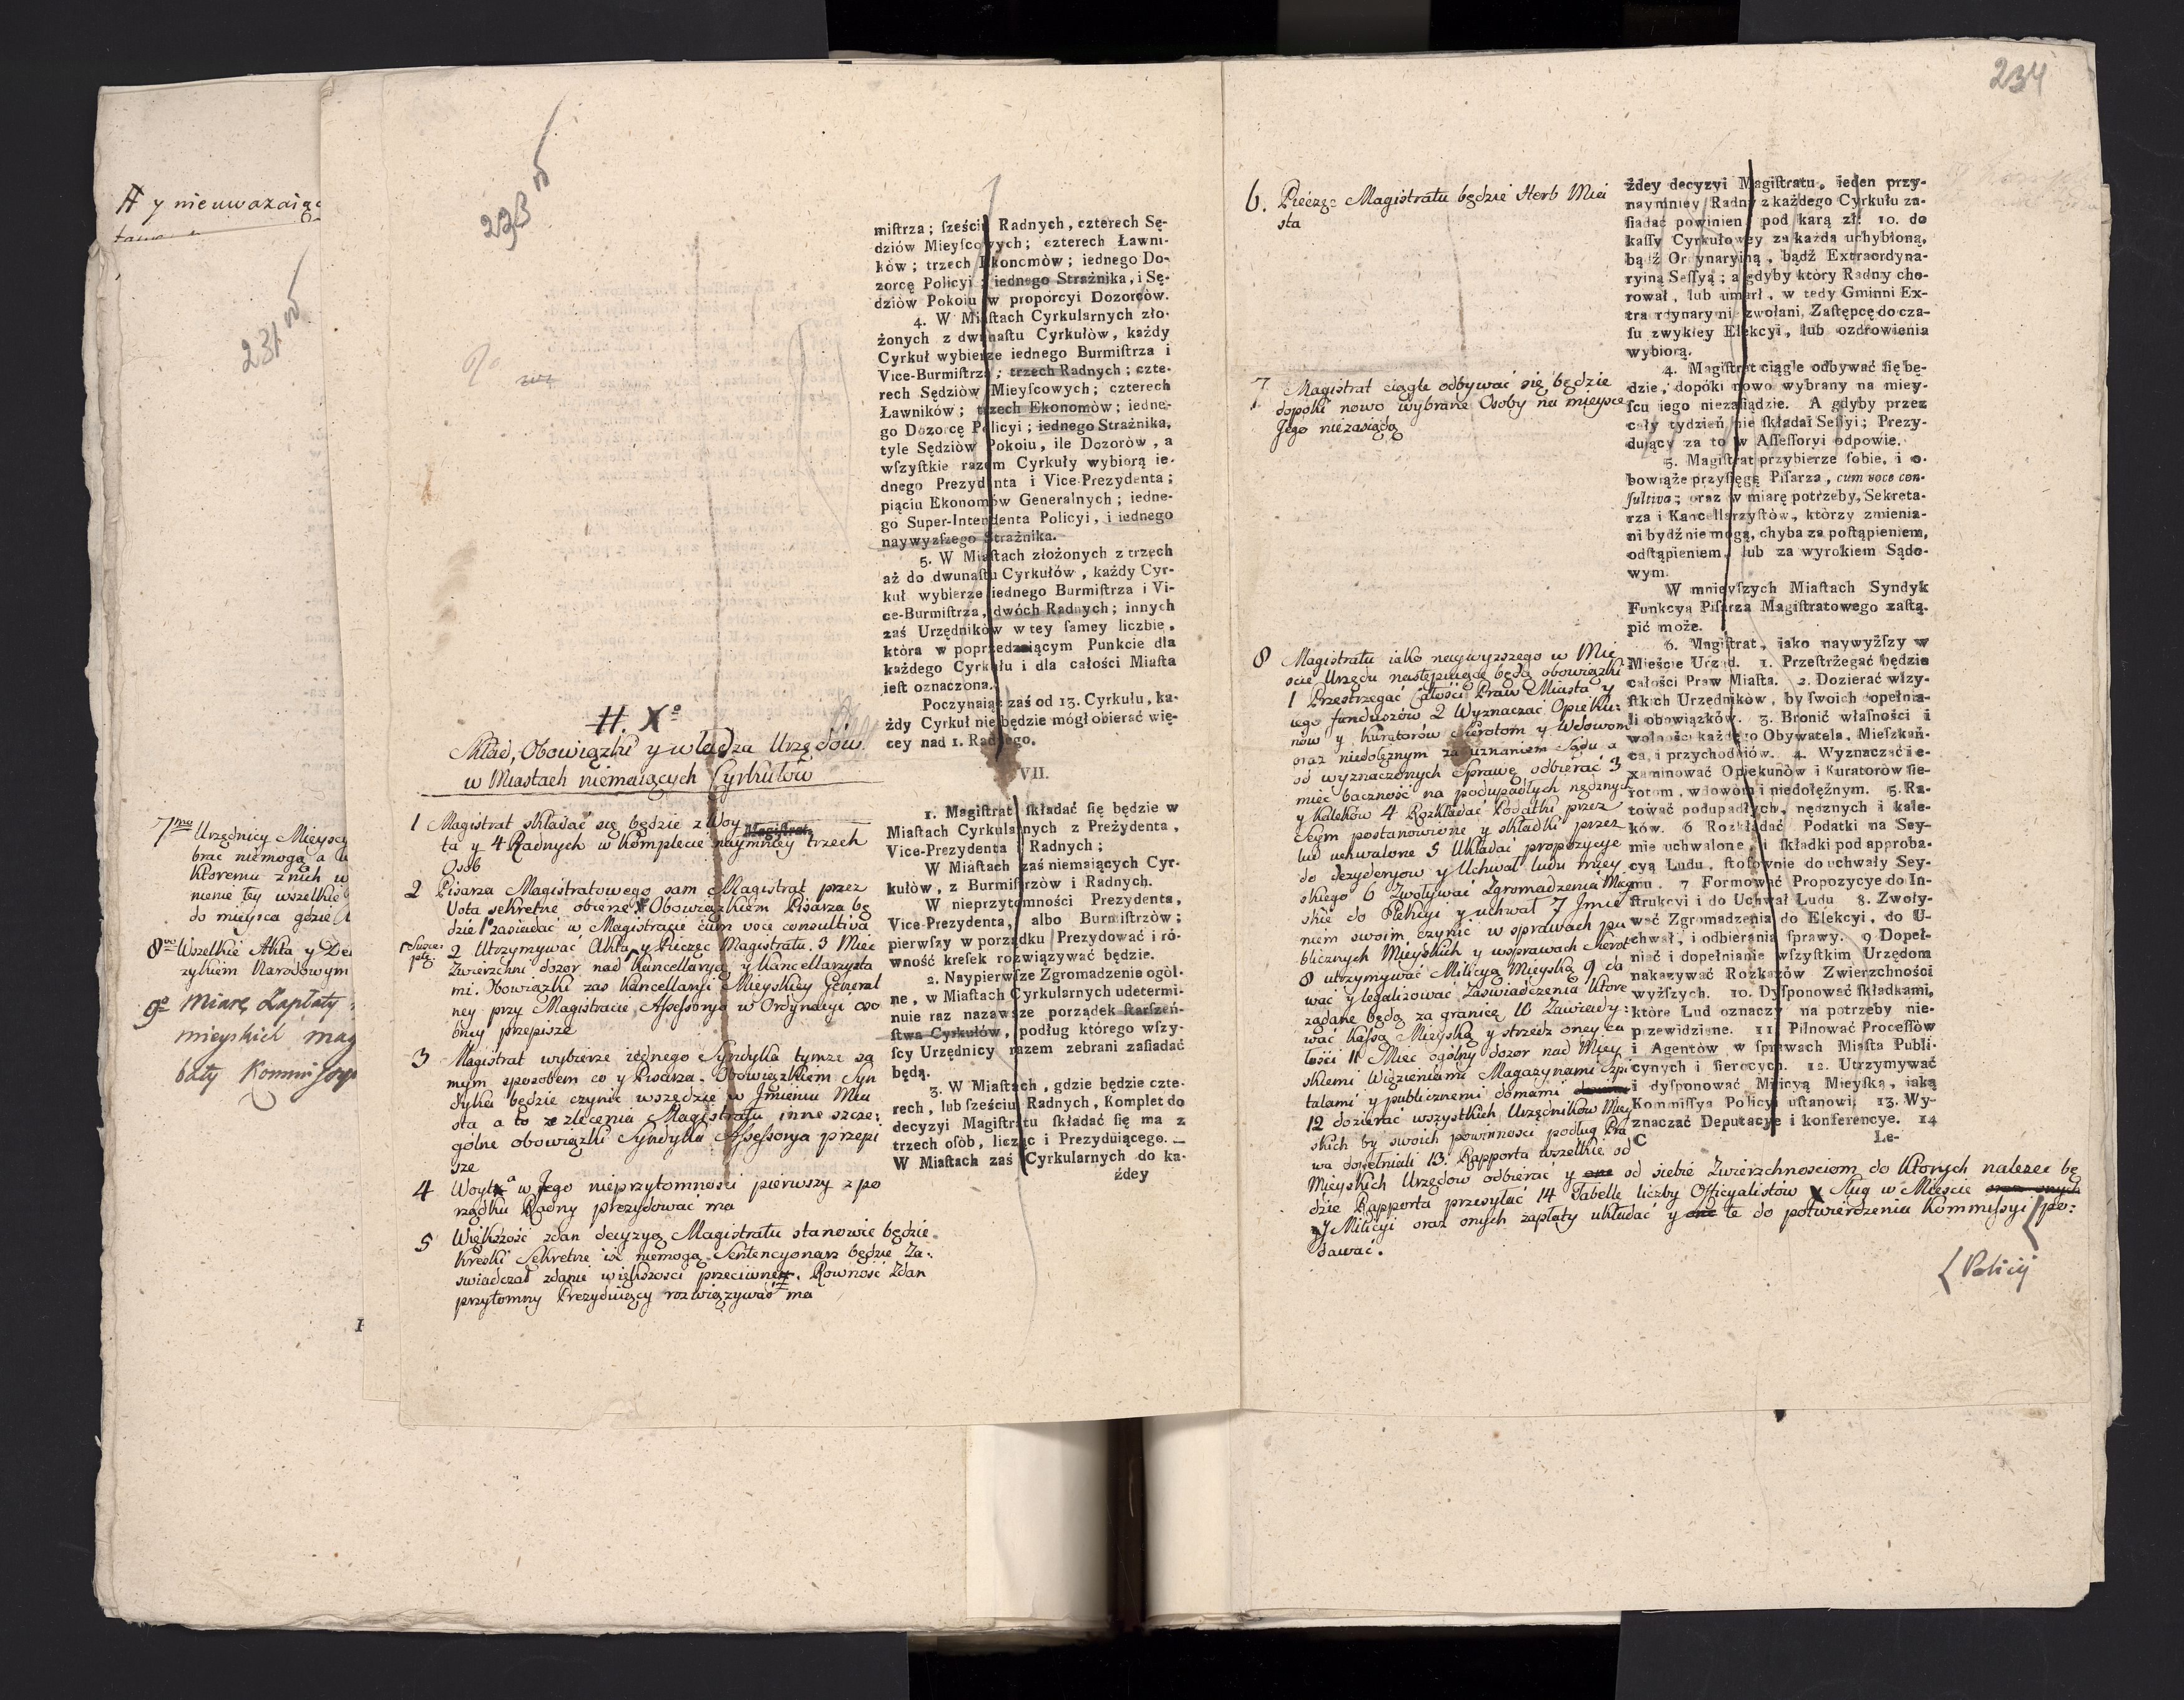 H y nieuwazaiąc
231 v
7mo Urzędnicy Mieyscy
brać niemogą a
ktoremu z nich w
nienie tey wszelkie
do mieysca gdzie
8vo Wszelkie Akta y De
zykiem Narodowym
9o Miarę Zapłaty
mieyskich mag
baty Kommissyi
233 v
miſtrza; ſześciu Radnych, czterech Sę-
dziów Mieyſcowych; czterech Ławni-
ków; trzech Ekonomòw; iednego Do-
zorcę Policyi; iednego Strażnika, i Sę-
dziòw Pokoiu w proporcyi Dozorców.
4. W Miaſtach Cyrkularnych zło-
żonych z dwunaſtu Cyrkułòw, każdy
Cyrkuł wybierze iednego Burmiſtrza i
Vice-Burmiſtrza; trzech Radnych; czte-
rech Sędziòw Mieyſcowych; czterech
Ławników; trzech Ekonomòw; iedne-
go Dozorcę Policyi; iednego Strażnika,
tyle Sędziòw Pokoiu, ile Dozoròw, a
wſzyſtkie razem Cyrkuły wybiorą ie-
dnego Prezydenta i Vice-Prezydenta;
piąciu Ekonomòw Generalnych; iedne-
go Super-Intendenta Policyi, i iednego
naywyzſzego Strażnika.
5. W Miaſtach złożonych z trzech
aż do dwunaſtu Cyrkułów, każdy Cyr-
kuł wybierze iednego Burmiſtrza i Vi-
ce-Burmiſtrza, dwóch Radnych; innych
zaś Urzędników w tey ſamey liczbie,
która w poprzedzaiącym Punkcie dla
każdego Cyrkułu i dla całości Miaſta
ieſt oznaczona.
Poczynaiąc zaś od 13. Cyrkułu, ka-
żdy Cyrkuł nie będzie mógł obierać wię-
cey nad 1. Radnego.
VII.
1. Magiſtrat ſkładać ſię będzie w
Miaſtach Cyrkularnych z Preżydenta,
Vice-Prezydenta i Radnych;
W Miaſtach zaś niemaiących Cyr-
kułòw, z Burmiſtrzòw i Radnych.
W nieprzytomności Prezydenta,
Vice-Prezydenta, albo Burmiſtrzòw;
pierwſzy w porządku Prezydować i ró-
wność kreſek rozwiązywać będzie.
2. Naypierwſze Zgromadzenie ogòl-
ne, w Miaſtach Cyrkularnych udetermi-
nuie raz nazawſze porządek ſtarſzeń-
ſtwa Cyrkułów, podług którego wſzy-
ſcy Urzędnicy razem zebrani zaſiadać
będą.
3. W Miaſtach, gdzie będzie czte-
rech, lub ſześciu Radnych, Komplet do
decyzyi Magiſtratu ſkładać ſię ma z
trzech oſób, licząc i Prezyduiącego. —
W Miaſtach zaś Cyrkularnych do ka-
żdey
H. Xo
Skład, Obowiązki y władza Urzędów
w Miastach niemaiących Cyrkułów
1 Magistrat składać się będzie z Woy Magistrat
ta y 4 Radnych w komplecie naymniey trzech
Osob
2 Pisarza Magistratowego sam Magistrat przez
Vota sekretne obierze Obowiązkiem Pisarza bę
dzie 1o zasiadać w Magistracie cum voce consultiva
2 Utrzymywać Akta y Pieczęć Magistratu. 3 Mieć
Zwierzchni dozor nad Kancellaryą y Kancellarzysta
mi. Obowiązki zas Kancellaryi Mieyskiey General
ney przy Magistracie, Assessorya w Ordynacyi oso
bney przepisze
3 Magistrat wybierze iednego Syndyka tymze sa
mym sposobem co y Pisarza. Obowiązkiem Syn
dyka będzie czynić wszędzie w Jmieniu Mia
sta a to ze zlecenia Magistratu inne szcze:
gólne obowiązki Syndyka Assessorya przepi
sze
4 Woyt a w Jego nieprzytomności pierwszy z po
rządku Radny prezydować ma
5 Większość zdan decyzyą Magistratu stanowić będzie
kreski Sekretne iść niemogą. Sentencyonarz będzie Za:
swiadczał zdanie większosci przeciwne. Rowność Zdan
przytomny Prezyduiący rozwiązywać ma
234
6. Pieczęć Magistratu będzie Herb Mia
sta
7 Magistrat ciągle odbywać się będzie
dopóki nowo wybrane Osoby na mieysce
Jego niezasiędą
8 Magistratu iako naywyzszego w Mie
scie Urzędu następuiące będą obowiązki
1 Przestrzegać całości Praw Miasta y
iego funduszów 2 Wyznaczać Opieku:
nów y Kuratorów Sierotom y Wdowom
oraz niedołężnym za uznaniem Sądu a
od wyznaczonych Sprawę odbierać 3
mieć baczność na podupadłych nędznych
y kaleków 4 Rozkładać Podatki przez
Seym postanowione y składki przez
lud uchwalone 5 Układać propozycye
do dezyderyow y Uchwał ludu miey
skiego 6 Zwoływać Zgromadzenia Miey
skie do Elekcyi y uchwał 7 Jmie
niem swoim czynić w sprawach pu
blicznych Mieyskich y wsprawach Sierot
8 utrzymywać Milicyą Mieyską 9 da
wać y legalizować Zaswiadczenia które
żądane będą za granicę 10 Zawiady:
wać kassą Mieyską y strzedz oney ca
łości 11 Mieć ogólny dozor nad Miey
skiemi Więzieniami Magazynami Szpi
talami y publicznemi domami
12 dozierać wszystkich Urzędników Miey
skich by swoich powinnosci podług Pra
wa dopełniali 13. Rapporta wszelkie od
Mieyskich Urzędow odbierać y one od siebie Zwierzchnosciom do ktorych nalezeć bę
dzie Rapporta przesyłać 14 Tabelle liczby Officyalistów y Sług w Miescie oraz onych
y Milicyi oraz onych zapłaty układać y one te do potwierdzenia Kommissyi { po:
dawać.
{ Policyi
żdey decyzyi Magiſtratu, ieden przy-
naymniey Radny z każdego Cyrkułu za-
ſiadać powinien pod karą zł: 10. do
kaſſy Cyrkułowey za każdą uchybioną,
bądź Ordynaryiną, bądź Extraordyna-
ryiną Seſſyą; a gdyby który Radny cho-
rował, lub umarł, w tedy Gminni Ex-
traordynaryinie zwołani, Zaſtępcę do cza-
ſu zwykłey Elekcyi, lub ozdrowienia
wybiorą.
4. Magiſtrat ciągle odbywać ſię bę-
dzie, dopóki nowo wybrany na miey-
ſcu iego niezaſiądzie. A gdyby przez
cały tydzień nie ſkładał Seſſyi; Prezy-
duiący za to w Aſſeſſoryi odpowie.
5. Magiſtrat przybierze ſobie, i o-
bowiąże przyſięgą Piſarza, cum voce con-
ſultiva; oraz w miarę potrzeby, Sekreta-
rza i Kancellarzyſtòw, którzy zmienia-
ni bydź nie mogą, chyba za poſtąpieniem,
odſtąpieniem, lub za wyrokiem Sądo-
wym.
W mnieyſzych Miaſtach Syndyk
Funkcyą Piſarza Magiſtratowego zaſtą-
pić może.
6. Magiſtrat, iako naywyżſzy w
Mieście Urząd. 1. Przeſtrżegać będzie
całości Praw Miaſta. 2. Dozierać wſzy-
ſtkich Urzędników, by ſwoich dopełnia-
li obowiązków. 3. Bronić właſności i
wolności każdego Obywatela, Mieſzkań-
ca, i przychodniów. 4. Wyznaczać i e-
xaminować Opiekunòw i Kuratorów ſie-
rotom, wdowom i niedołężnym. 5. Ra-
tować podupadłych, nędznych i kale-
ków. 6 Rozkładać Podatki na Sey-
mie uchwalone, i ſkładki pod approba-
cyą Ludu, ſtoſownie do uchwały Sey-
mu. 7 Formować Propozycye do In-
ſtrukcyi i do Uchwał Ludu 8. Zwoły-
wać Zgromadzenia do Elekcyi, do U-
chwał, i odbierania ſprawy. 9 Dopeł-
niać i dopełnianie wſzyſtkim Urzędom
nakazywać Rozkazów Zwierzchności
wyżſzych. 10. Dyſponować ſkładkami,
które Lud oznaczy na potrzeby nie-
przewidziane. 11 Pilnować Proceſſów
i Agentów w ſprawach Miaſta Publi-
cynych i ſierocych. 12. Utrzymywać
i dyſponować Milicyą Mieyſką, iaką
Kommiſſya Policyi uſtanowi. 13. Wy-
znaczać Deputacye i konferencye. 14
C Le-